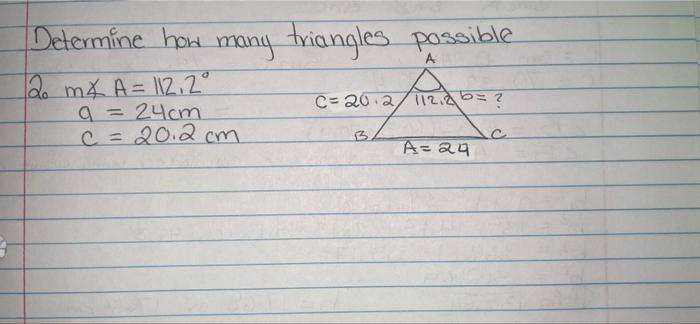 Determine how many triangles possible
2. m∡ A = 112.2°
a = 24cm
c = 20.2 cm
A
c = 20.2
112.2
b = ?
B
C
A = 24